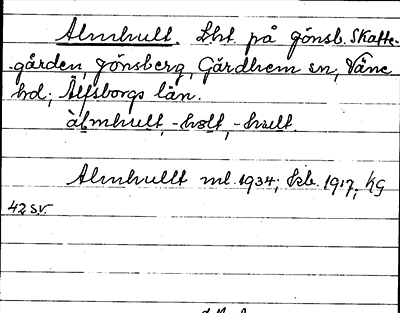 Almhult. Lht på Jönsb. Skatte-
gården Jönsberg, Gärdhem sn, Väne
hd; Älfsborgs län.
àlmhult, -hòlt, -hult.
Almhullt ml. 1934; Skb. 1917, KG
42 sv.